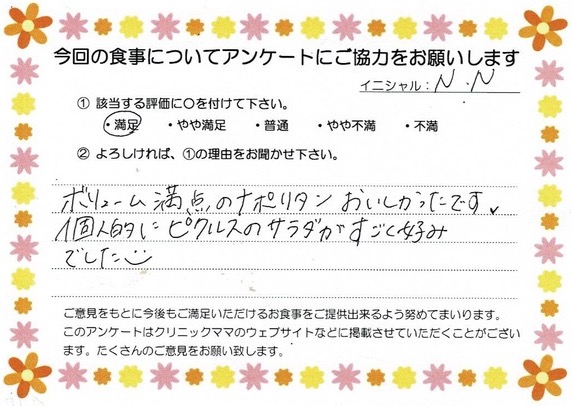 今回の食事についてアンケートにご協力をお願いします
イニシャル：N.N
① 該当する評価に○を付けて下さい。
・満足 ・やや満足 ・普通 ・やや不満 ・不満
② よろしければ、①の理由をお聞かせ下さい。
ボリューム満点のナポリタンおいしかったです。
個人的にピクルスのサラダがすごく好み
でした
ご意見をもとに今後もご満足いただけるお食事をご提供出来るよう努めてまいります。
このアンケートはクリニックママのウェブサイトなどに掲載させていただくことがござい
ます。たくさんのご意見をお願い致します。